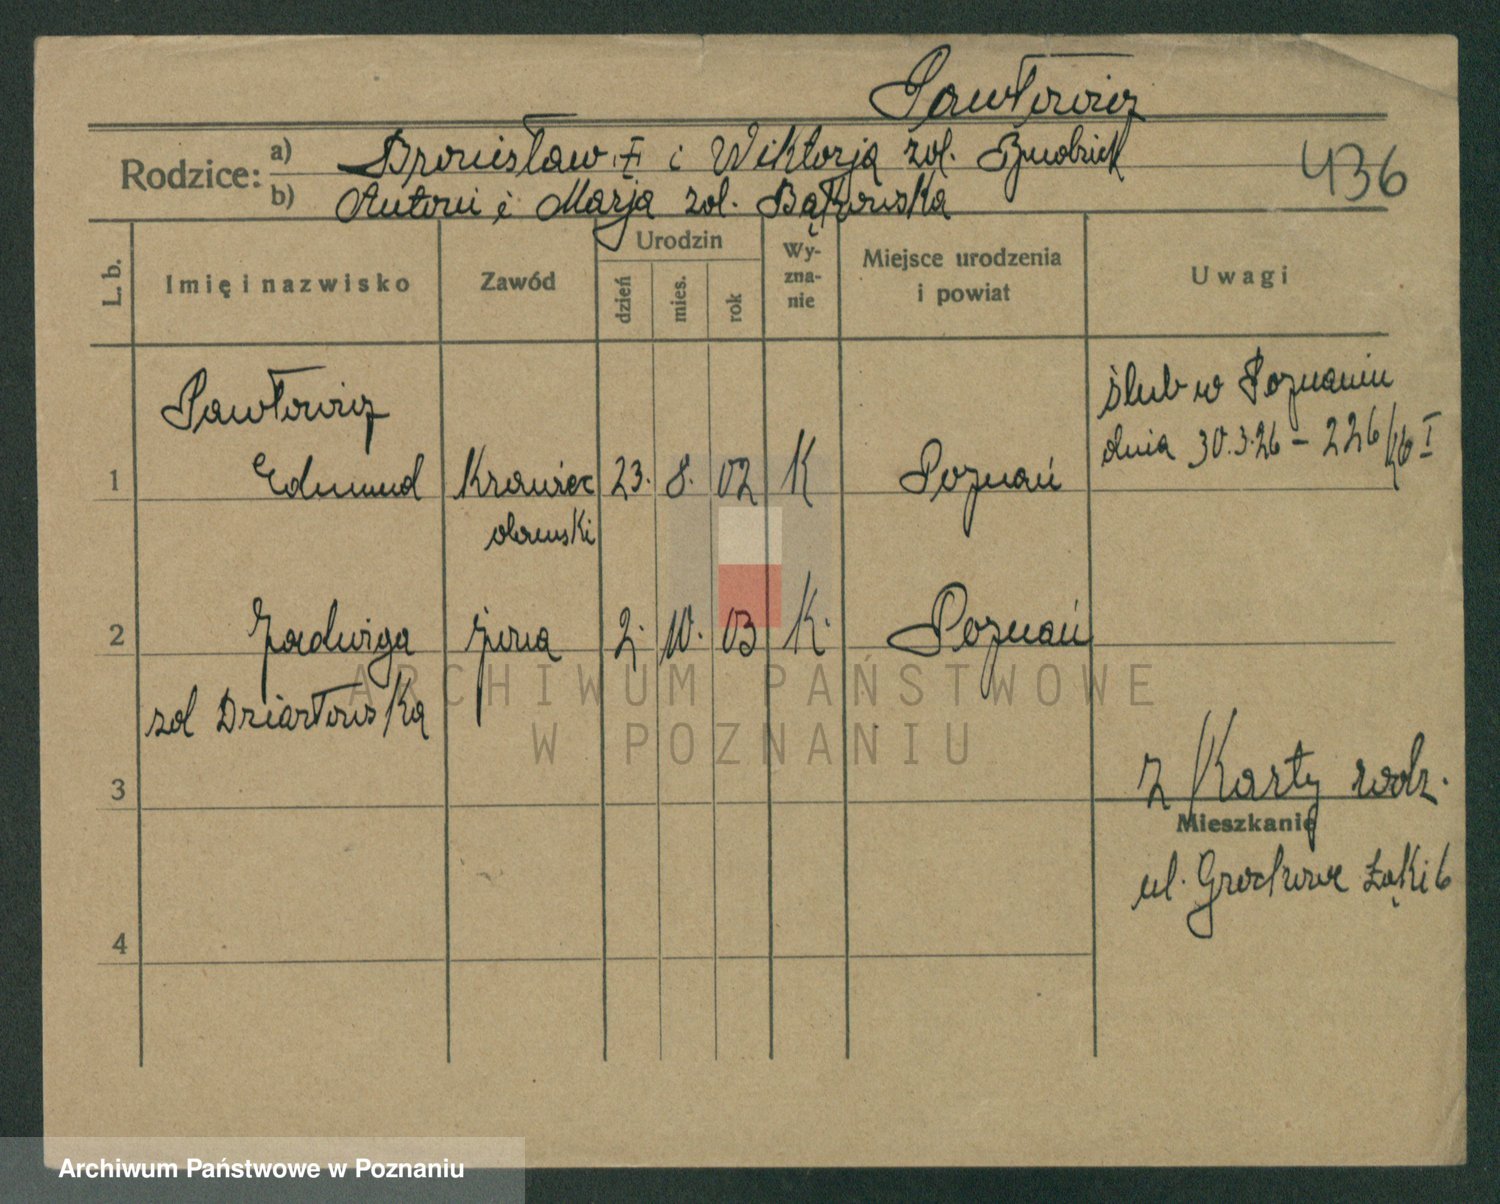 Pawłowicz
436
Rodzice: a) Bronisław i Wiktorja zol.
b) Antoni i Marja zol. Bąkowska
L. b.
Imię i nazwisko
Zawód
Urodzin
dzień
mies.
rok
Wy-
zna-
nie
Miejsce urodzenia
i powiat
Uwagi
Pawłowicz
1 Edmund Krawiec 23. 8. 02 K Poznań
damski
ślub w Poznaniu
dnia 30.3.26 - 226/26 I
2 Jadwiga żona 2. 10. 03 K. Poznań
zol Dziarłowska
3
z Karty rodz.
Mieszkanie
ul. Grochowe Łąki 6
4
ARCHIWUM PAŃSTWOWE
W POZNANIU
Archiwum Państwowe w Poznaniu